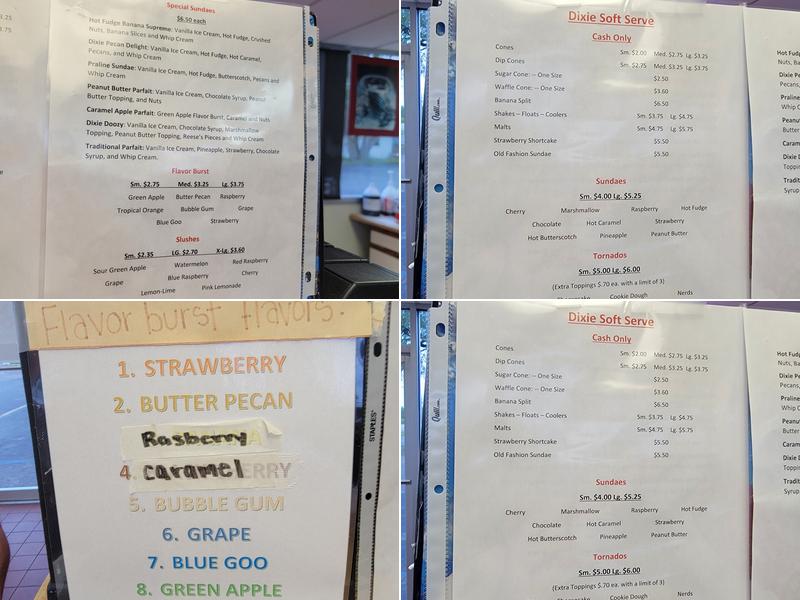 Special Sundaes
$6.50 each
Hot Fudge Banana Supreme: Vanilla Ice Cream, Hot Fudge, Crushed
Nuts, Banana Slices and Whip Cream
Dixie Pecan Delight: Vanilla Ice Cream, Hot Fudge, Hot Caramel,
Pecans, and Whip Cream
Praline Sundae: Vanilla Ice Cream, Hot Fudge, Butterscotch, Pecans and
Whip Cream
Peanut Butter Parfait: Vanilla Ice Cream, Chocolate Syrup, Peanut
Butter Topping, and Nuts
Caramel Apple Parfait: Green Apple Flavor Burst, Caramel and Nuts
Dixie Doozy: Vanilla Ice Cream, Chocolate Syrup, Marshmallow
Topping, Peanut Butter Topping, Reese's Pieces and Whip Cream
Traditional Parfait: Vanilla Ice Cream, Pineapple, Strawberry, Chocolate
Syrup, and Whip Cream.
Flavor Burst
Sm. $2.75 Med. $3.25 Lg. $3.75
Green Apple Butter Pecan Raspberry
Tropical Orange Bubble Gum Grape
Blue Goo Strawberry
Slushes
Sm. $2.35 LG. $2.70 X-Lg. $3.60
Sour Green Apple Watermelon Red Raspberry
Grape Blue Raspberry Cherry
Lemon-Lime Pink Lemonade
Dixie Soft Serve
Cash Only
Cones Sm. $2.00 Med. $2.75 Lg. $3.25
Dip Cones Sm. $2.75 Med. $3.25 Lg. $3.75
Sugar Cone: -- One Size $2.50
Waffle Cone: -- One Size $3.60
Banana Split $6.50
Shakes – Floats – Coolers Sm. $3.75 Lg. $4.75
Malts Sm. $4.75 Lg. $5.75
Strawberry Shortcake $5.50
Old Fashion Sundae $5.50
Sundaes
Sm. $4.00 Lg. $5.25
Cherry Marshmallow Raspberry Hot Fudge
Chocolate Hot Caramel Strawberry
Hot Butterscotch Pineapple Peanut Butter
Tornados
Sm. $5.00 Lg. $6.00
(Extra Toppings $.70 ea. with a limit of 3)
Cookie Dough Nerds
Flavor burst flavors:
1. STRAWBERRY
2. BUTTER PECAN
Rasberry
4. caramel ERRY
5. BUBBLE GUM
6. GRAPE
7. BLUE GOO
8. GREEN APPLE
STAPLES
Dixie Soft Serve
Cash Only
Cones Sm. $2.00 Med. $2.75 Lg. $3.25
Dip Cones Sm. $2.75 Med. $3.25 Lg. $3.75
Sugar Cone: -- One Size $2.50
Waffle Cone: -- One Size $3.60
Banana Split $6.50
Shakes – Floats – Coolers Sm. $3.75 Lg. $4.75
Malts Sm. $4.75 Lg. $5.75
Strawberry Shortcake $5.50
Old Fashion Sundae $5.50
Sundaes
Sm. $4.00 Lg. $5.25
Cherry Marshmallow Raspberry Hot Fudge
Chocolate Hot Caramel Strawberry
Hot Butterscotch Pineapple Peanut Butter
Tornados
Sm. $5.00 Lg. $6.00
(Extra Toppings $.70 ea. with a limit of 3)
Cookie Dough Nerds